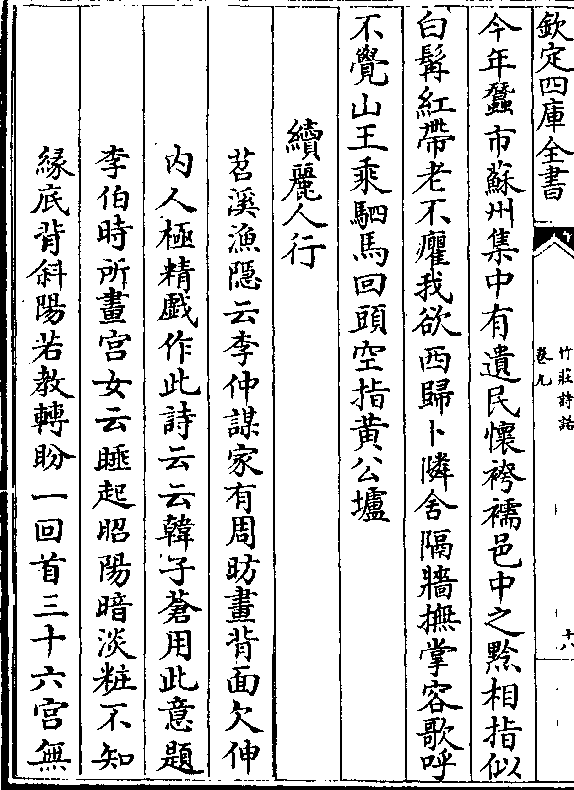 欽定四庫全書
竹莊詩話
卷九
十八
今年蠶市蘇州集中有遺民懷袴襦邑中之黔相指似
白髯紅帶老不癯我欲西歸卜隣舍隔牆撫掌容歌呼
不覺山王乘駟馬回頭空指黄公壚
續麗人行
苕溪漁隱云李仲謀家有周昉畫背面欠伸
内人極精戲作此詩云云韓子蒼用此意題
李伯時所畫宫女云睡起昭陽暗淡粧不知
緣底背斜陽若教轉盼一回首三十六宫無